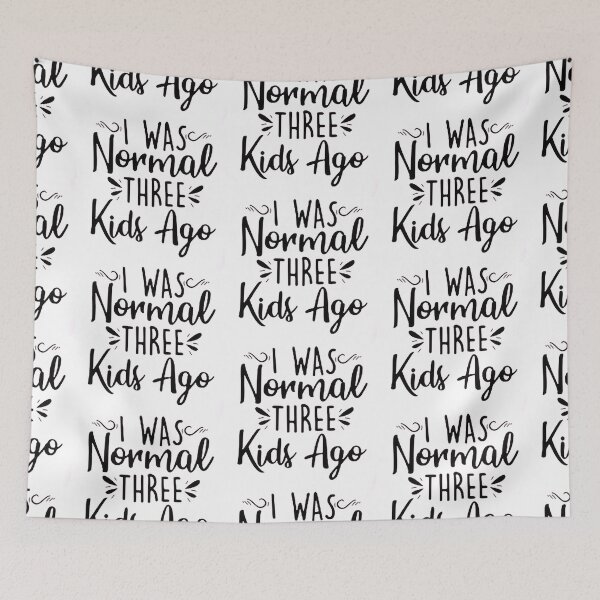 Kids Ago
I WAS
Normal
THREE
Kids Ago
I WAS
Normal
THREE
Kids Ago
I WAS
Normal
THREE
Kids Ago
Normal
THREE
Kids Ago
I WAS
Normal
THREE
Kids Ago
I WAS
Normal
THREE
Kids Ago
I WAS
Normal
Kids Ago
I WAS
Normal
THREE
Kids Ago
I WAS
Normal
THREE
Kids Ago
I WAS
Normal
THREE
Kids Ago